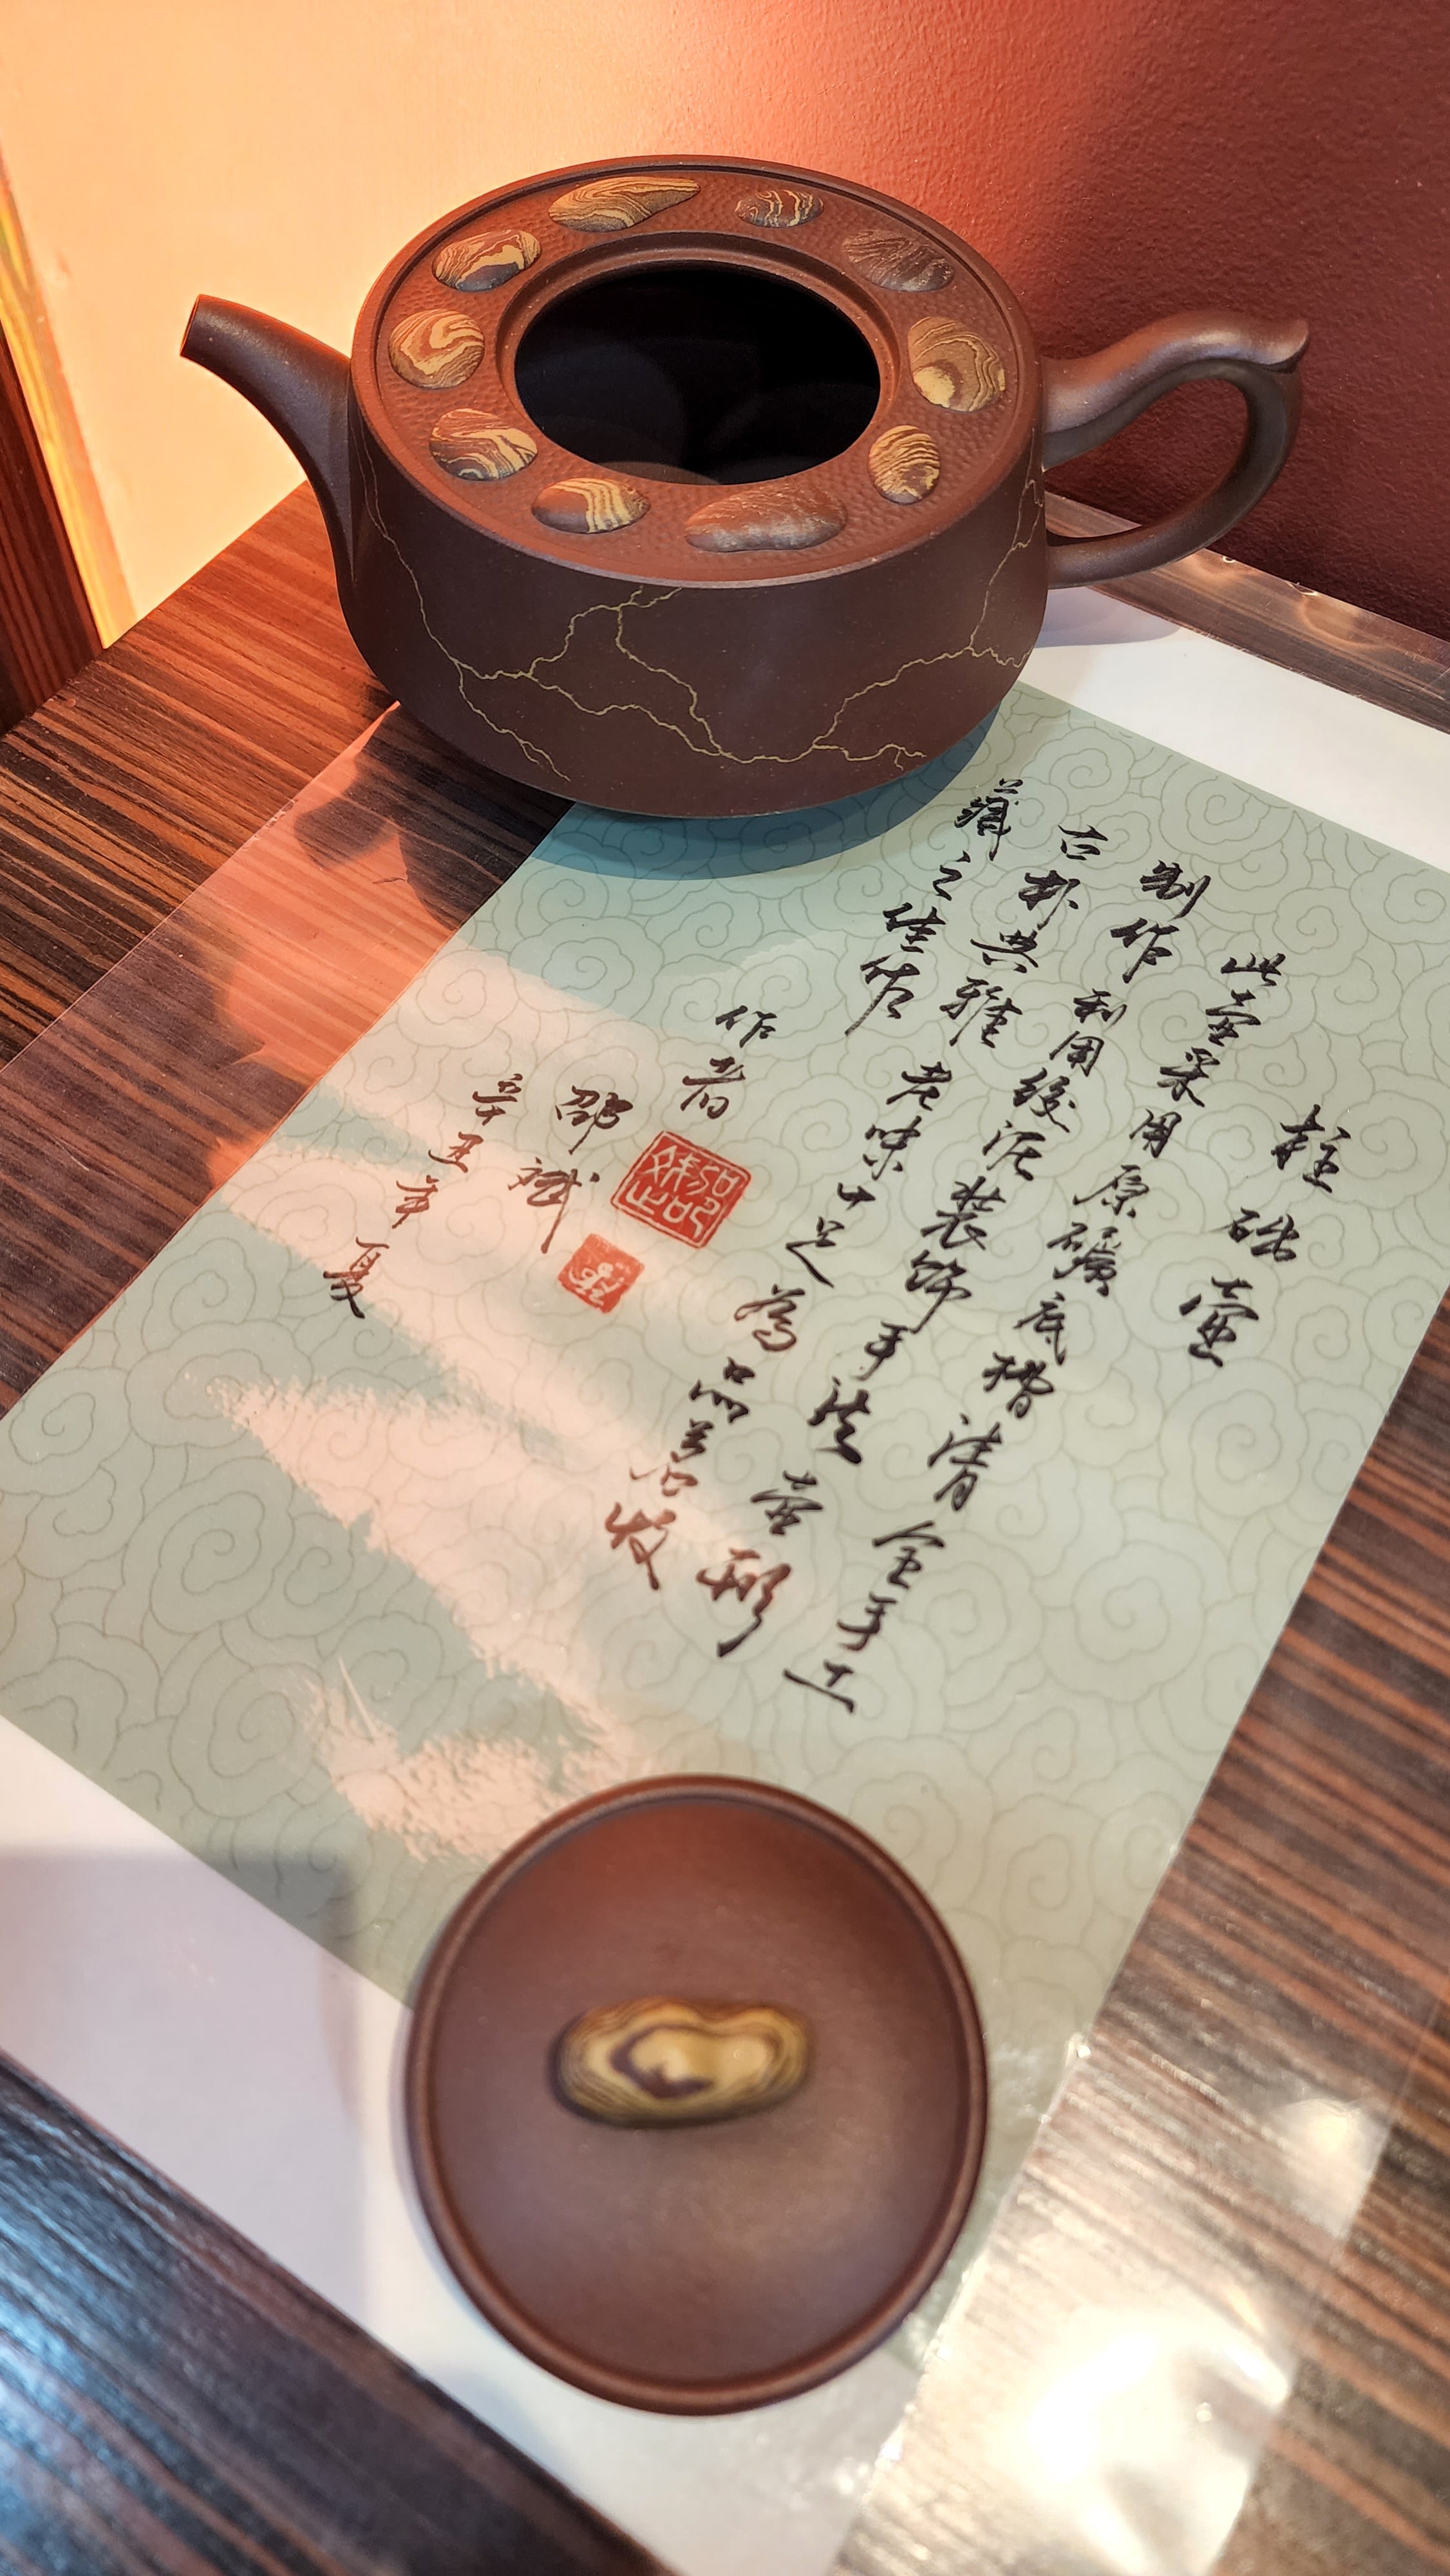 柱础壶
此壶采用原礦底槽清全手工
制作利用绞泥装饰手法壶形
古朴典雅老味十足為品茗收
藏之佳作
作者
邵斌
辛丑年夏